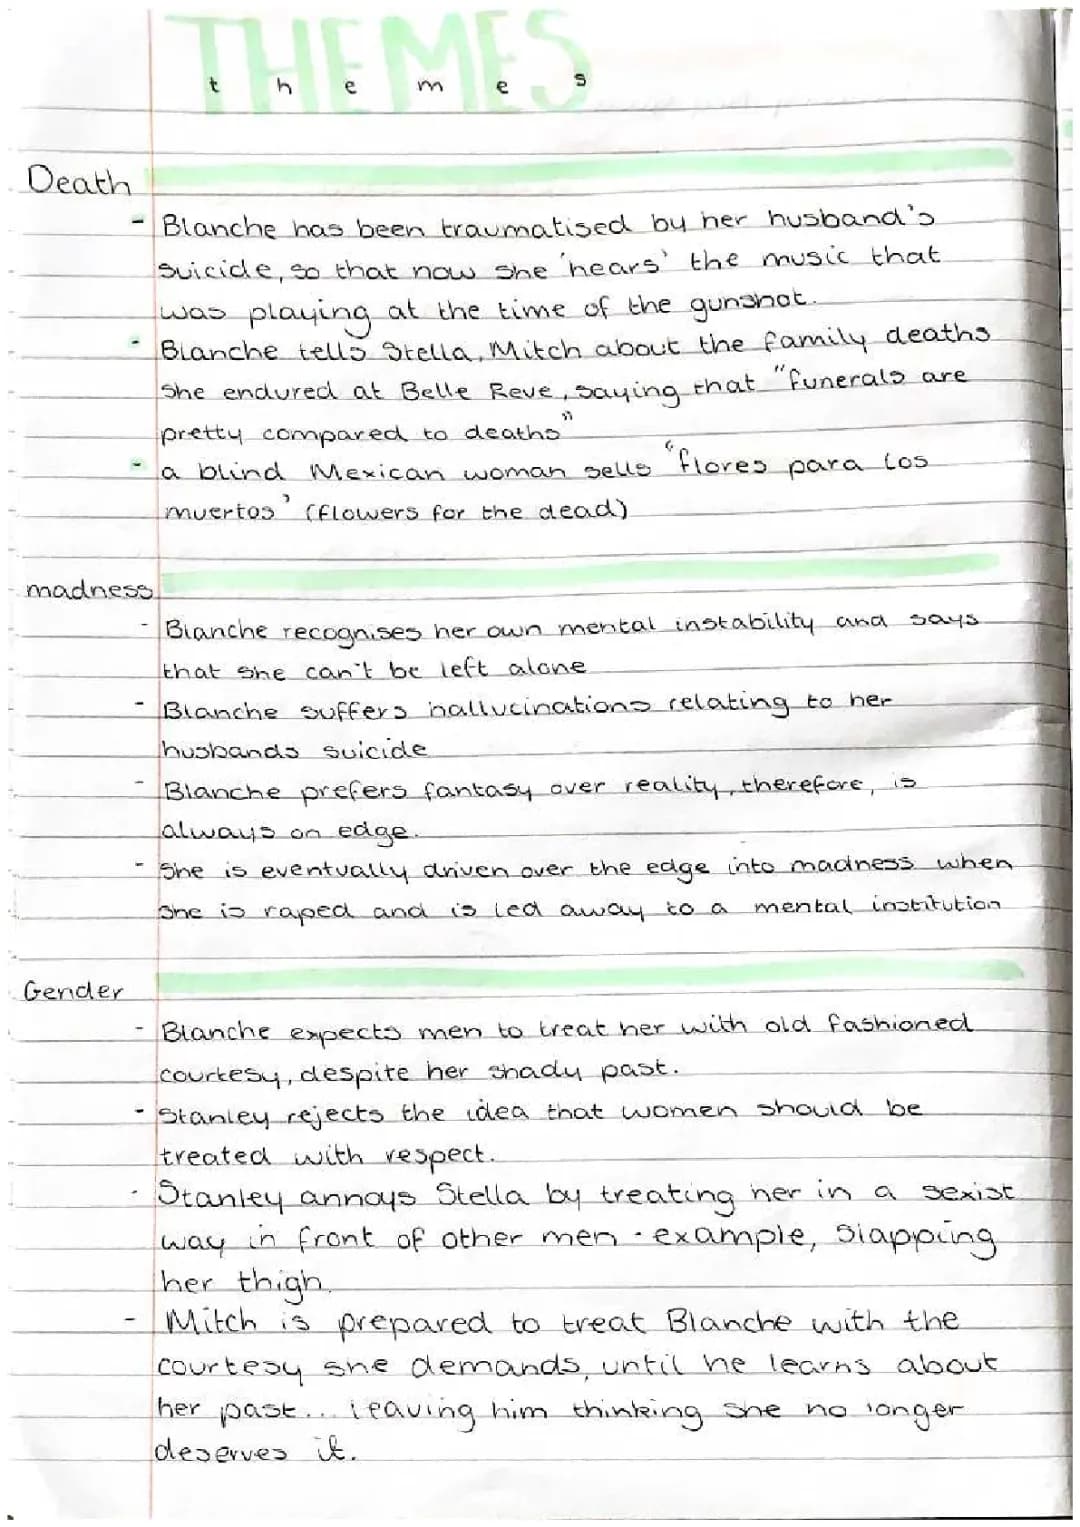 THEMES
themes
Death
- Blanche has been traumatised by her husband's
suicide, so that now she 'hears' the music that
was playing at the time of the gunshot.
- Blanche tells Stella, Mitch about the family deaths
she endured at Belle Reve, saying that "funerals are
pretty compared to deaths"
- a blind Mexican woman sells "flores para los
muertos' (flowers for the dead)
madness
- Blanche recognises her own mental instability and says
that she can't be left alone
- Blanche suffers hallucinations relating to her
husbands suicide
- Blanche prefers fantasy over reality, therefore, is
always on edge.
- She is eventually driven over the edge into madness when
she is raped and is led away to a mental institution
Gender
- Blanche expects men to treat her with old fashioned
courtesy, despite her shady past.
- Stanley rejects the idea that women should be
treated with respect.
- Stanley annoys Stella by treating her in a sexist
way in front of other men - example, slapping
her thigh.
- Mitch is prepared to treat Blanche with the
courtesy she demands, until he learns about
her past... leaving him thinking she no longer
deserves it.